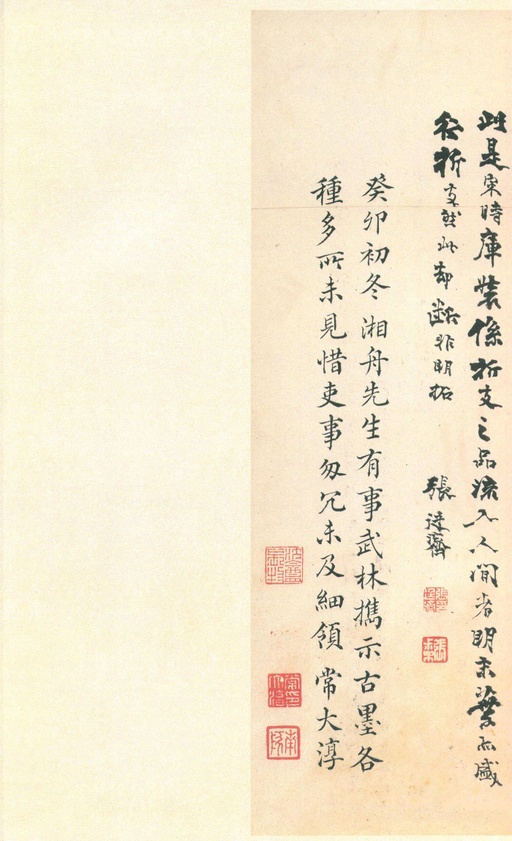 此是宋時庫裝係折支之品流入人間者明末叢而盛
行折支然此却斷非明拓
張廷齋
癸卯初冬湘舟先生有事武林携示古墨各
種多所未見惜吏事匆冗未及細領常大淳